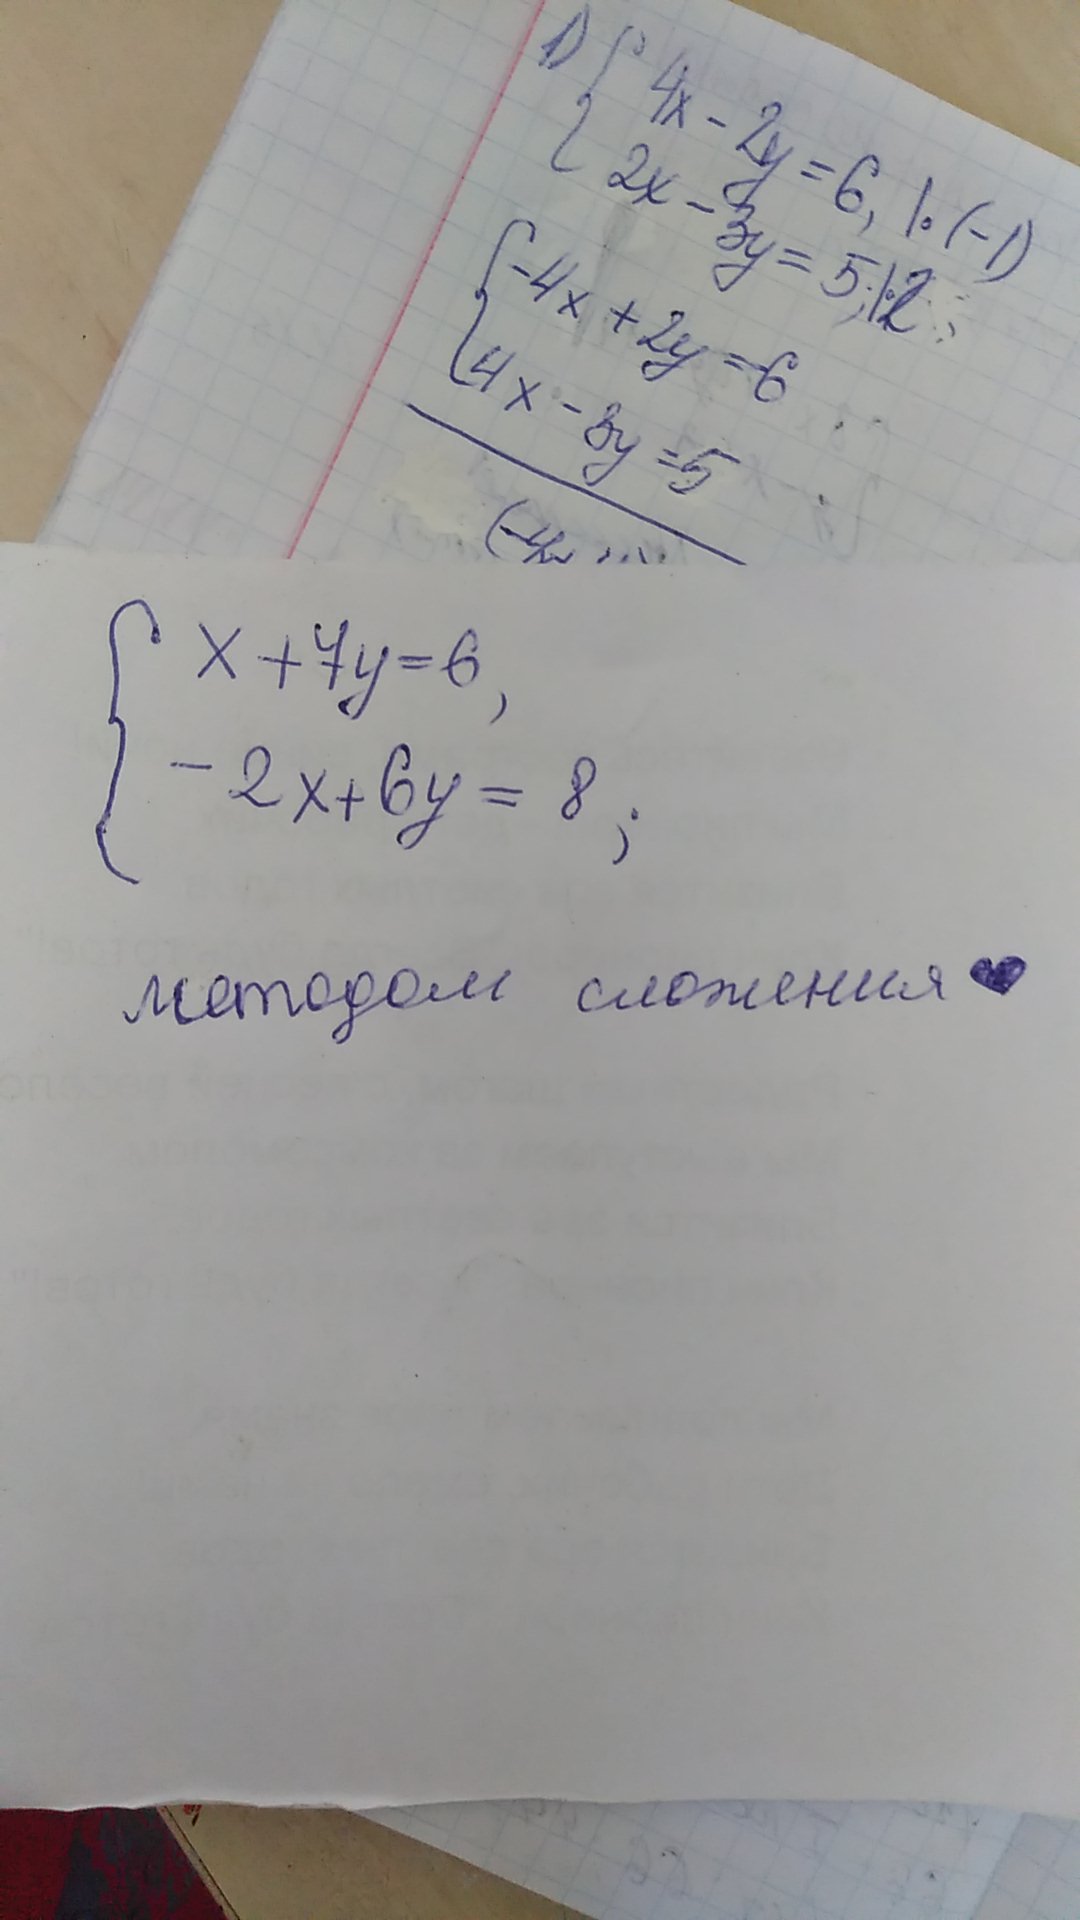 1) { 4x - 2y = 6, |·(-1)
2x - 3y = 5; |·2
{ -4x + 2y = -6
4x - 3y = 5
{ x + 7y = 6,
-2x + 6y = 8;
методом сложения ♥